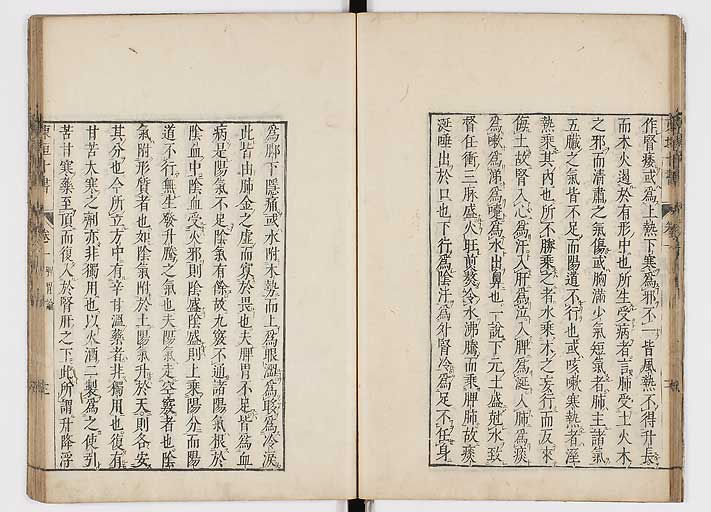 作腎痿或為上熱下寒為邪不一皆風熱不得升長
而木火遏於有形中也所生受病者言肺受土火木
之邪而清肅之氣傷或胸滿少氣短氣者肺主諸氣
五臟之氣皆不足而陽道不行也或咳嗽寒熱者濕
熱乘其內也所不勝乘之者水乘木之妄行而反來
侮土故腎入心為汗入肝為泣入脾為涎入肺為痰
為嗽為涕為嚏為水出鼻也一說下元土盛尅水致
督任衝三脉盛火旺煎熬冷水沸騰而乘脾肺故痰
涎唾出於口也下行為陰汗為外腎冷為足不任身
為脚下隱痛或水附木勢而上為眼澀為眵為冷淚
此皆由肺金之虛而寡於畏也夫脾胃不足皆為血
病是陽氣不足陰氣有餘故九竅不通諸陽氣根於
陰血中陰血受火邪則陰盛陰盛則上乘陽分而陽
道不行無生發升騰之氣也夫陽氣走空竅者也陰
氣附形質者也如陰氣附於土陽氣升於天則各安
其分也今所立方中有辛甘溫藥者非獨用也復有
甘苦大寒之劑亦非獨用也以火酒二製為之使引
苦甘寒藥至頂而復入於腎肝之下此所謂升降浮
東垣十書
卷
脾胃論